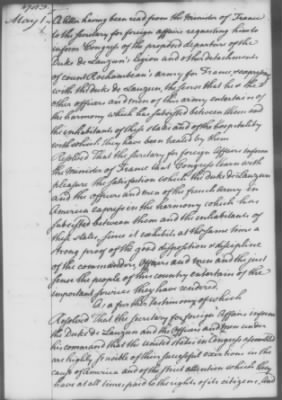 1783.
May 1. A Letter having been read from the Minister of France
to the secretary for foreign affairs requesting him to
inform Congress of the proposed departure of the
Duke de Lauzun's legion and other detachments
of count Rochambeau's army for France, & expressing
with the duke de Lauzun, the sense that he & the
other officers and men of this army entertain of
the harmony which has subsisted between them and
the inhabitants of these states and of the hospitality
with which they have been treated by them
Resolved That the secretary for foreign Affairs inform
the Minister of France that Congress learn with
pleasure the satisfaction which the duke de Lauzun
and the officers and men of the french army in
America express in the harmony which has
subsisted between them and the inhabitants of
these States, since it exhibits at the same time a
strong proof of the good disposition & discipline
of the commanders Officers and men and the just
sense the people of this country entertain of the
important services they have rendered.
As a farther testimony of which
Resolved That the secretary for foreign Affairs inform
the Duke de Lauzun and the Officers and men under
his command that the United states in Congress assembled
are highly sensible of their successful exertions in the
cause of America and of the strict attention which they
have at all times paid to the rights of its citizens, and